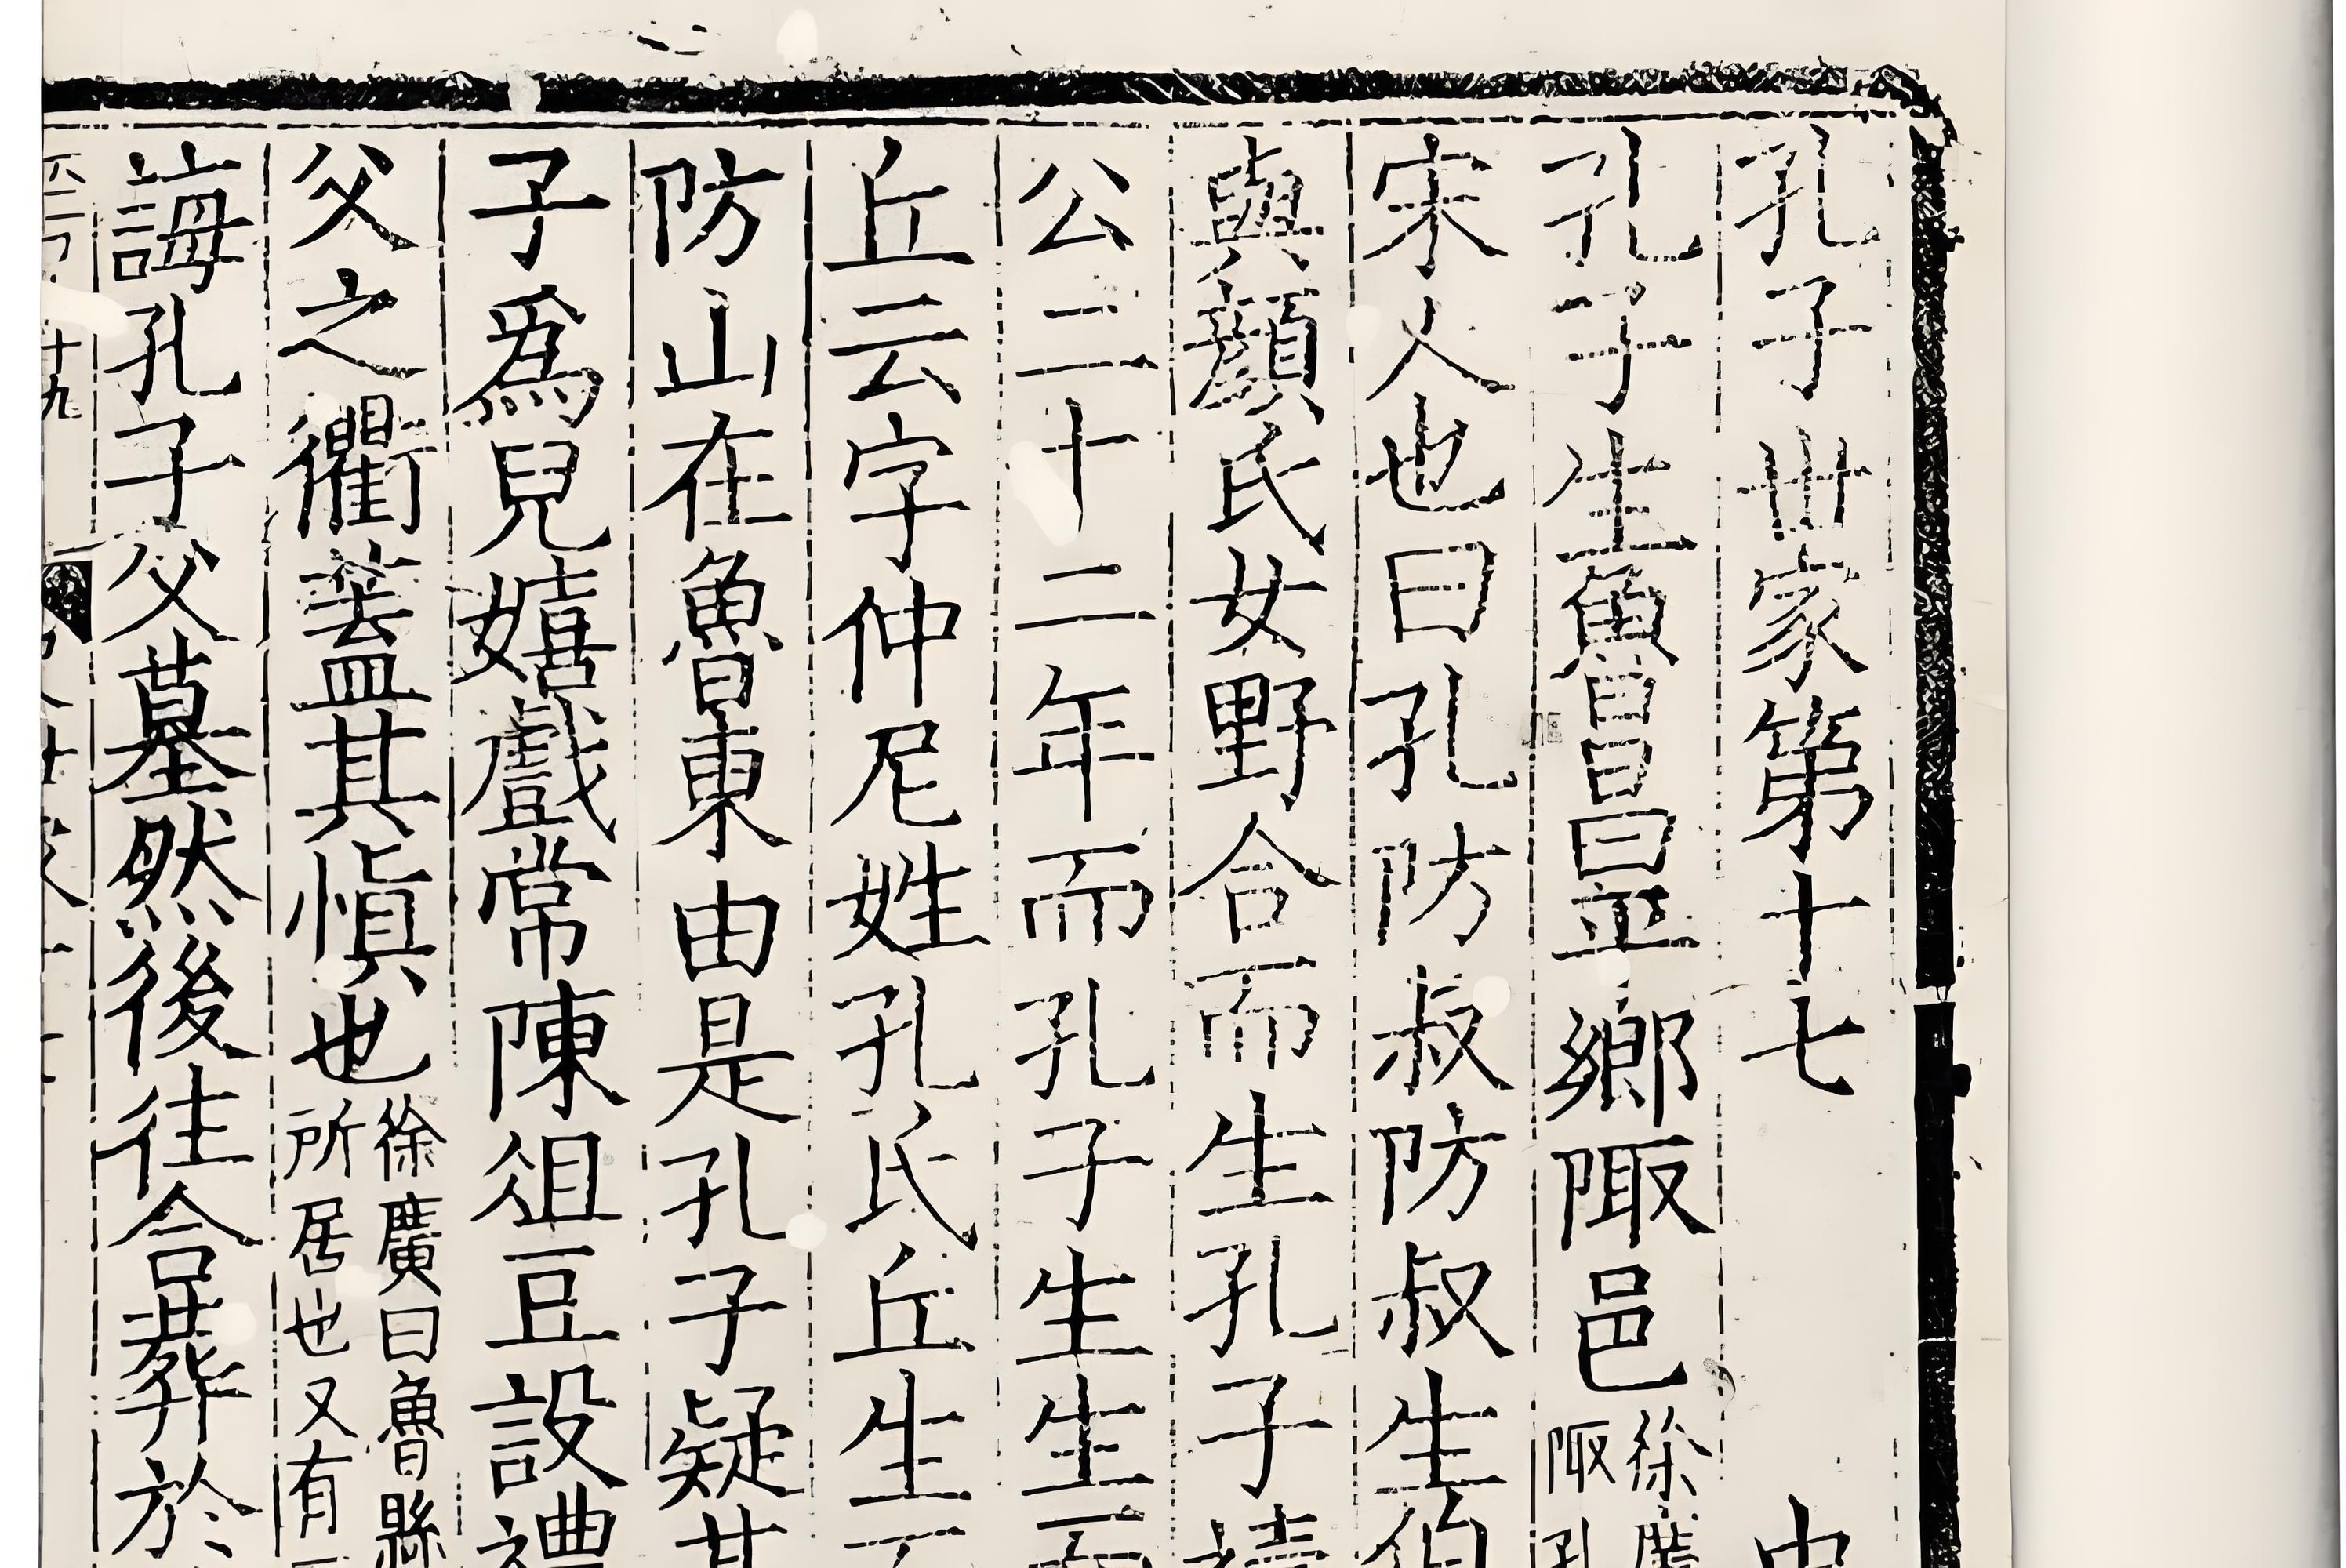 孔子世家第十七
孔子生魯昌平鄉陬邑
徐廣
陬孔
宋人也曰孔防叔防叔生伯
與顏氏女野合而生孔子禱
公二十二年而孔子生生而
丘云字仲尼姓孔氏丘生而
防山在魯東由是孔子疑其
子爲兒嬉戲常陳俎豆設禮
父之衢葢其慎也
徐廣曰魯縣
所居也又有
誨孔子父墓然後往合葬於
十九